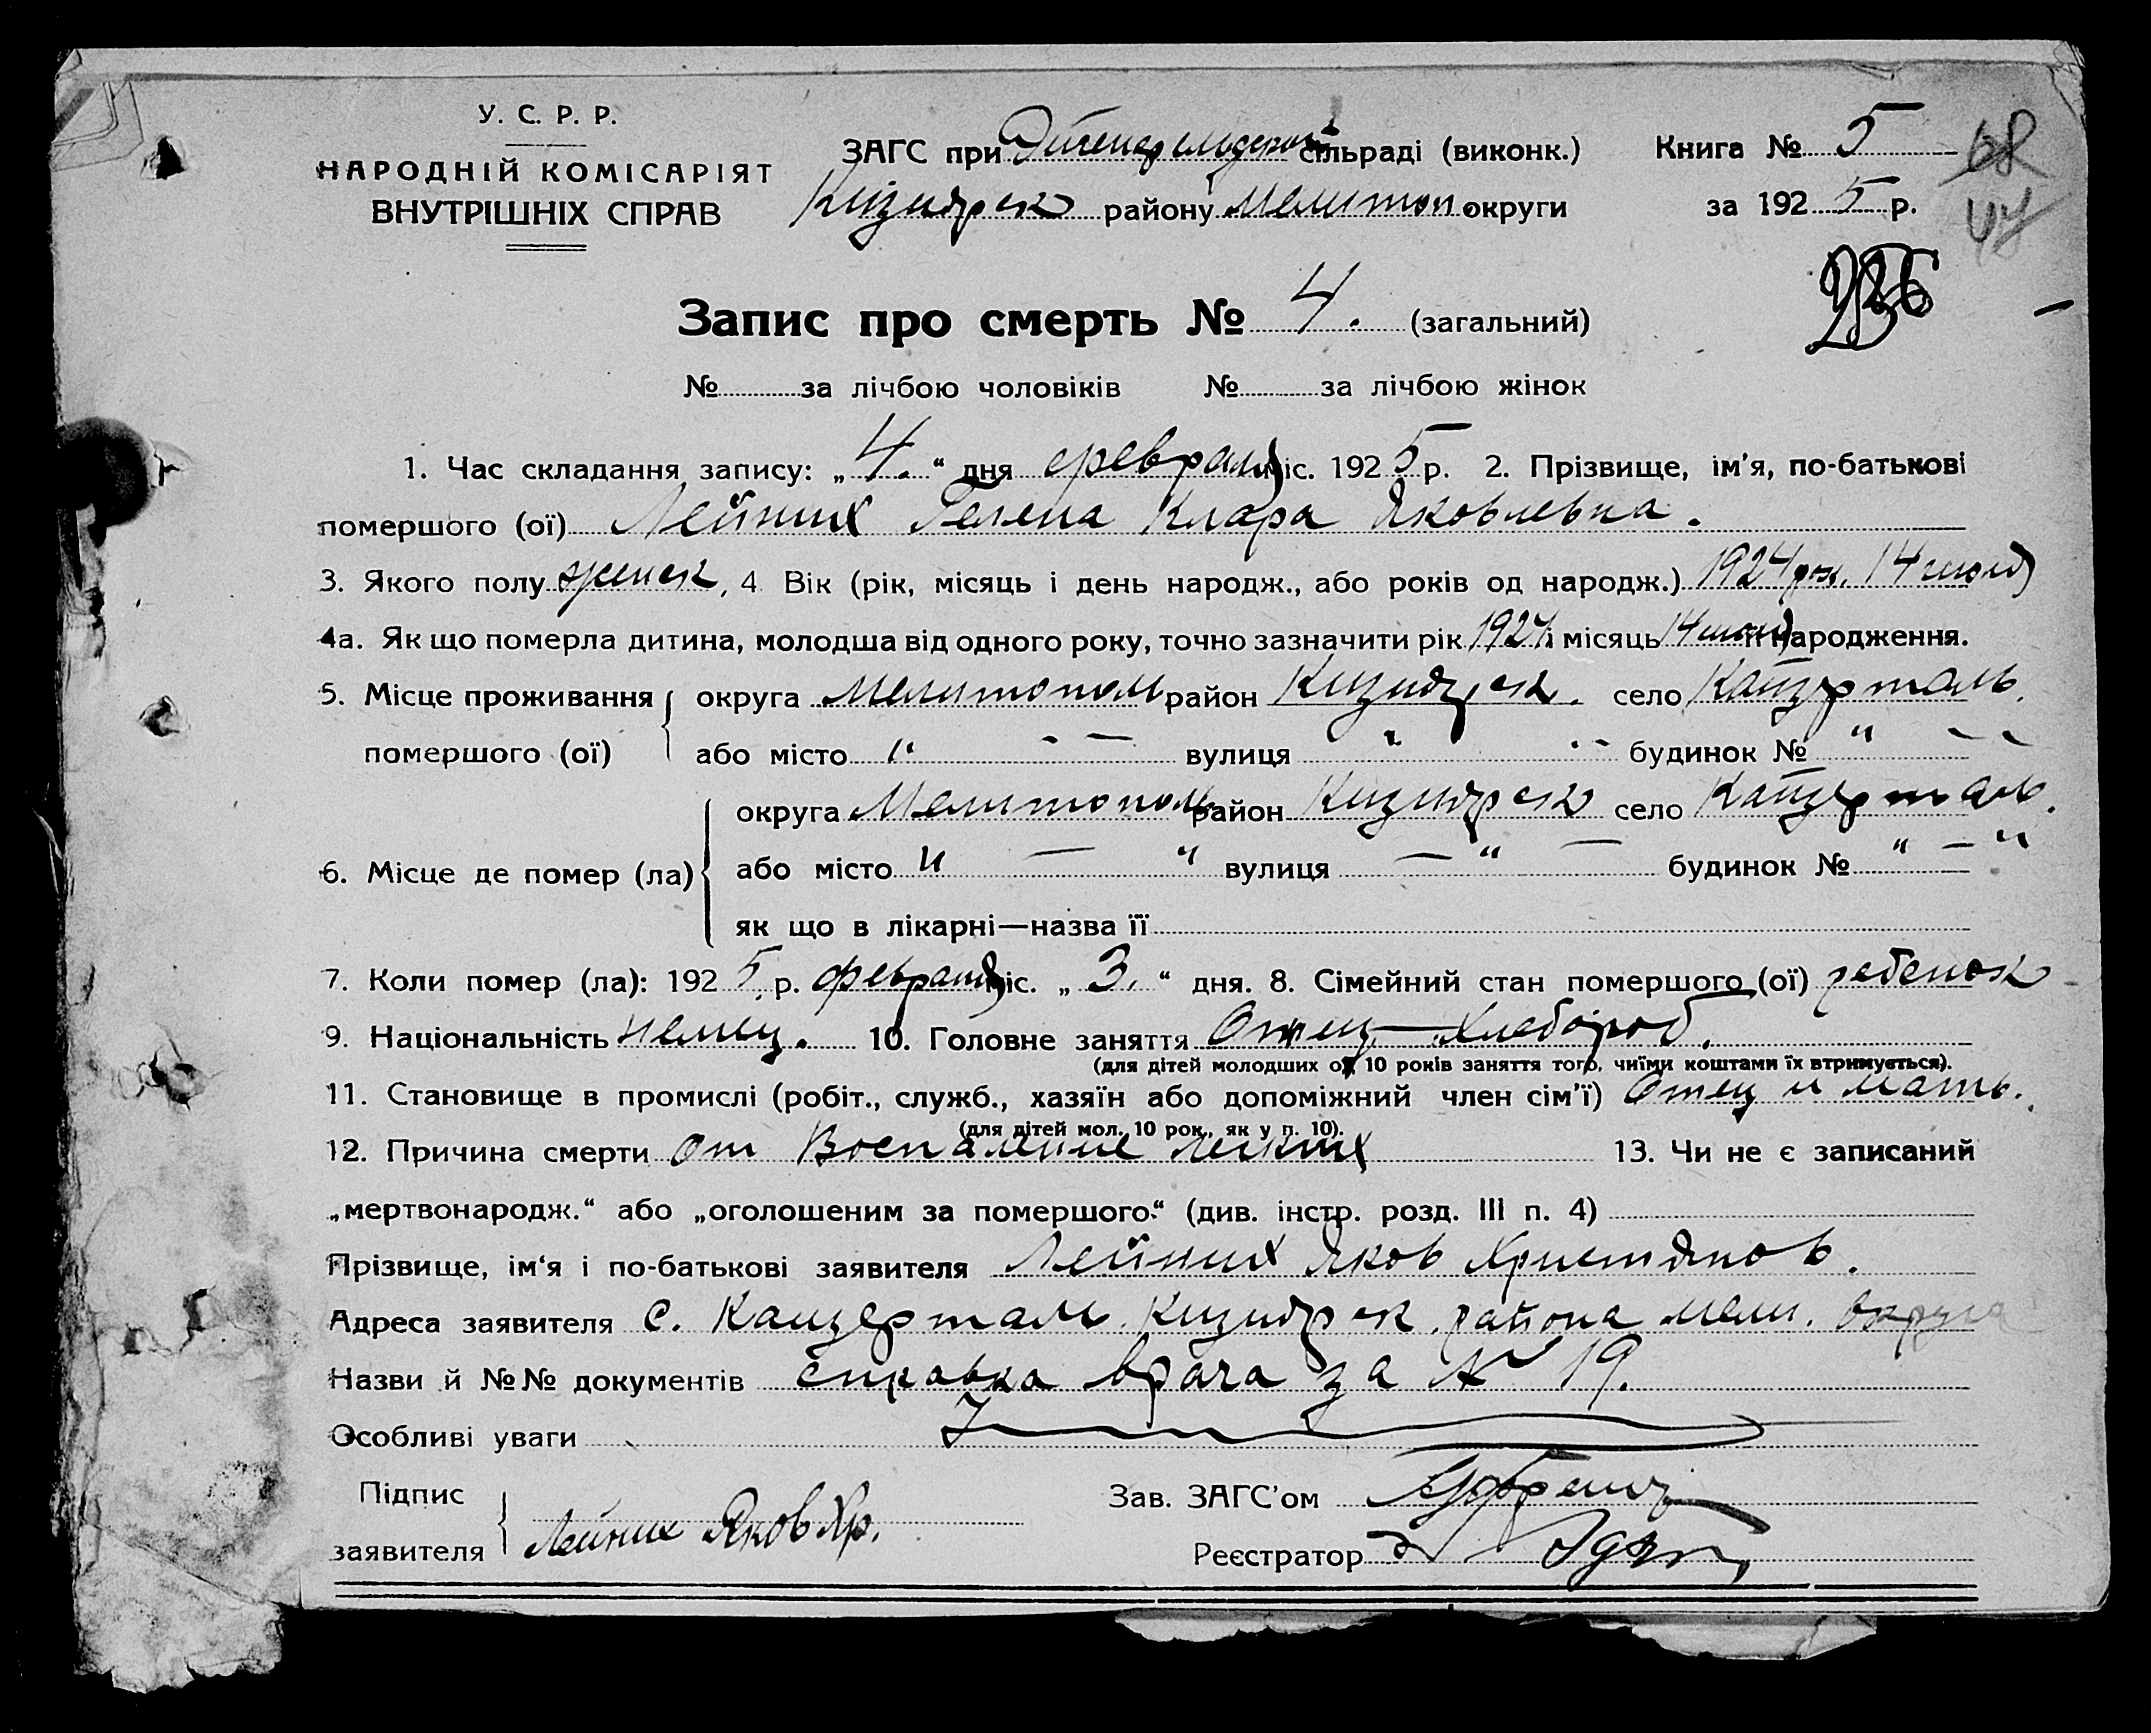 У. С. Р. Р.
НАРОДНІЙ КОМІСАРІЯТ
ВНУТРІШНІХ СПРАВ
ЗАГС при сільраді (виконк.) Книга № 5
Кизиярск району Мелитоп. округи за 1925 р.
68
47
Запис про смерть № 4. (загальний)
№ за лічбою чоловіків № за лічбою жінок
1. Час складання запису: „4.“ дня февраля міс. 1925 р. 2. Прізвище, ім'я, по-батькові
помершого (ої) Лейних Гелена Клара Яковлевна.
3. Якого полу женск, 4 Вік (рік, місяць і день народж., або років од народж.) 1924 год. 14 июля
4а. Як що померла дитина, молодша від одного року, точно зазначити рік 1924 і місяць 14 июля її народження.
5. Місце проживання помершого (ої) округа Мелитополь район Кизиярск. село Кайзерталь.
або місто " - - вулиця " - - будинок № " - -
6. Місце де помер (ла) округа Мелитополь район Кизиярск село Кайзерталь.
або місто " — " вулиця — " — будинок № " — "
як що в лікарні—назва її
7. Коли помер (ла): 1925 р. февраля міс. „3.“ дня. 8. Сімейний стан помершого (ої) ребенок
9. Національність немец. 10. Головне заняття Отец Хлебороб.
(для дітей молодших од 10 років заняття того, чиїми коштами їх втримується).
11. Становище в промислі (робіт., служб., хазяїн або допоміжний член сім'ї) Отец и мать.
(для дітей мол. 10 рок., як у п. 10).
12. Причина смерти от Воспаление легких 13. Чи не є записаний
„мертвонародж.“ або „оголошеним за помершого“ (див. інстр. розд. III п. 4)
Прізвище, ім'я і по-батькові заявителя Лейних Яков Христянов.
Адреса заявителя С. Кайзерталь. Кизиярск. района Мели. округа
Назви й №№ документів справка врача за № 19.
Особливі уваги
Підпис заявителя Лейних Яков Хр.
Зав. ЗАГС'ом
Реєстратор